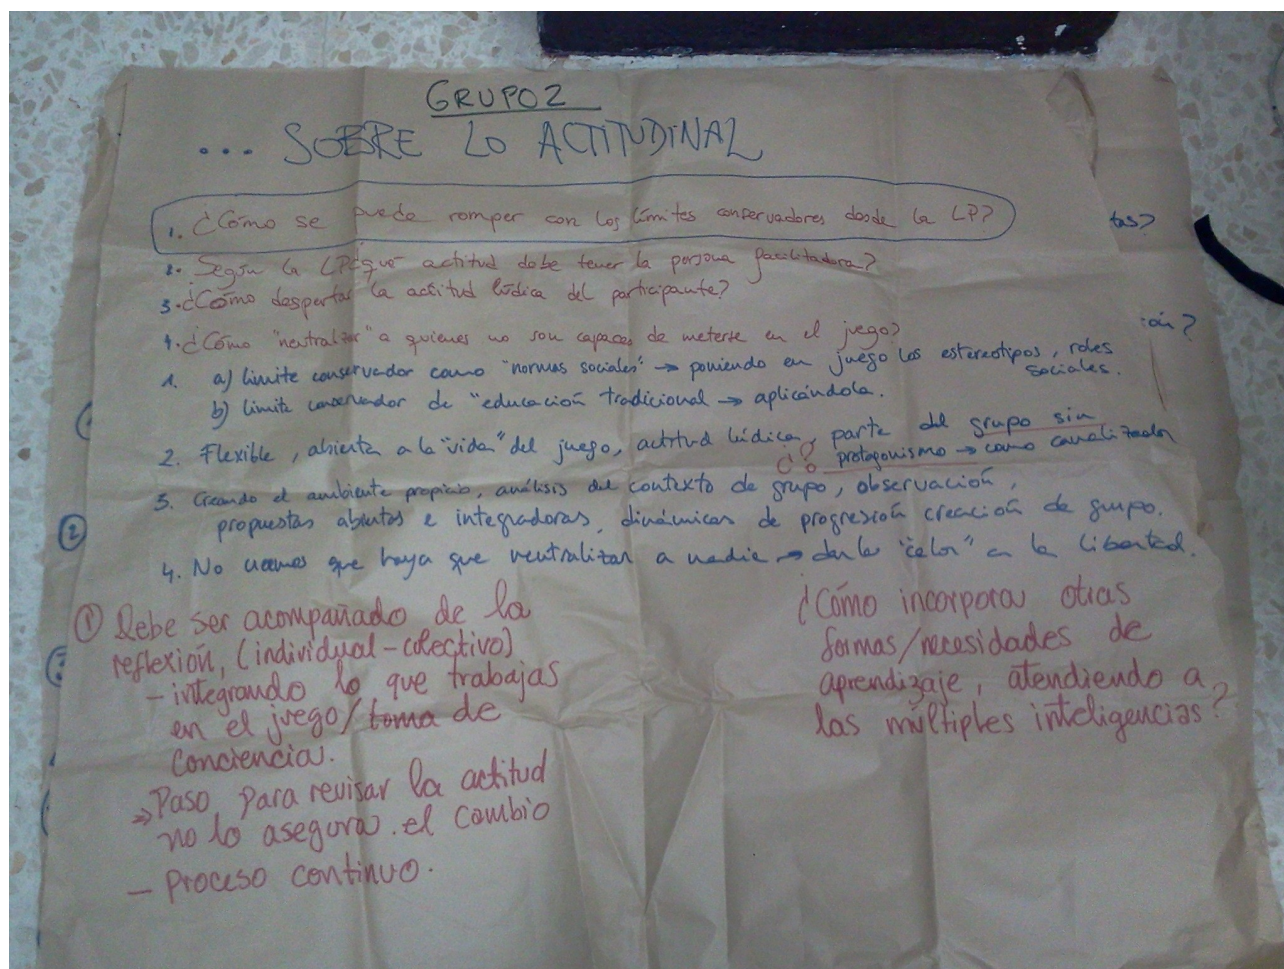 GRUPO 2
... SOBRE LO ACTITUDINAL
1. ¿Cómo se puede romper con los límites conservadores desde la LP?
2. Según la LP ¿qué actitud debe tener la persona facilitadora?
3. ¿Cómo despertar la actitud lúdica del participante?
4. ¿Cómo "neutralizar" a quienes no son capaces de meterse en el juego?
1. a) límite conservador como "normas sociales" → poniendo en juego los estereotipos, roles
sociales.
b) límite conservador de "educación tradicional → aplicándola.
2. Flexible, abierta a la "vida" del juego, actitud lúdica, parte del grupo sin
¿? protagonismo → como canalizador
3. Creando el ambiente propicio, análisis del contexto de grupo, observación,
propuestas abiertas e integradoras, dinámicas de progresión creación de grupo.
4. No creemos que haya que neutralizar a nadie → darle "calor" en la libertad.
① Debe ser acompañado de la
reflexión, (individual - colectivo)
- integrando lo que trabajas
en el juego/toma de
conciencia.
→ Paso para revisar la actitud
no lo asegura el cambio
- Proceso continuo.
¿Cómo incorporar otras
formas/necesidades de
aprendizaje, atendiendo a
las múltiples inteligencias?
tas?
ión?
②